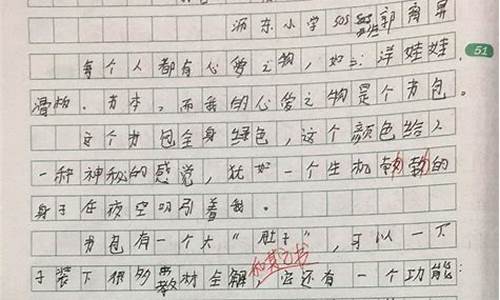 沥东小学505班郭育昇
51
每个人都有心爱之物,如:洋娃娃、
滑板、书本,而我的心爱之物是个书包。
这个书包全身绿色,这个颜色给人
一种神秘的感觉,犹如一个生机勃勃的
身子在夜空吸引着我。
书包有一个大“肚子”,可以一下
子装下很多教材全解和其它书它还有一个功能